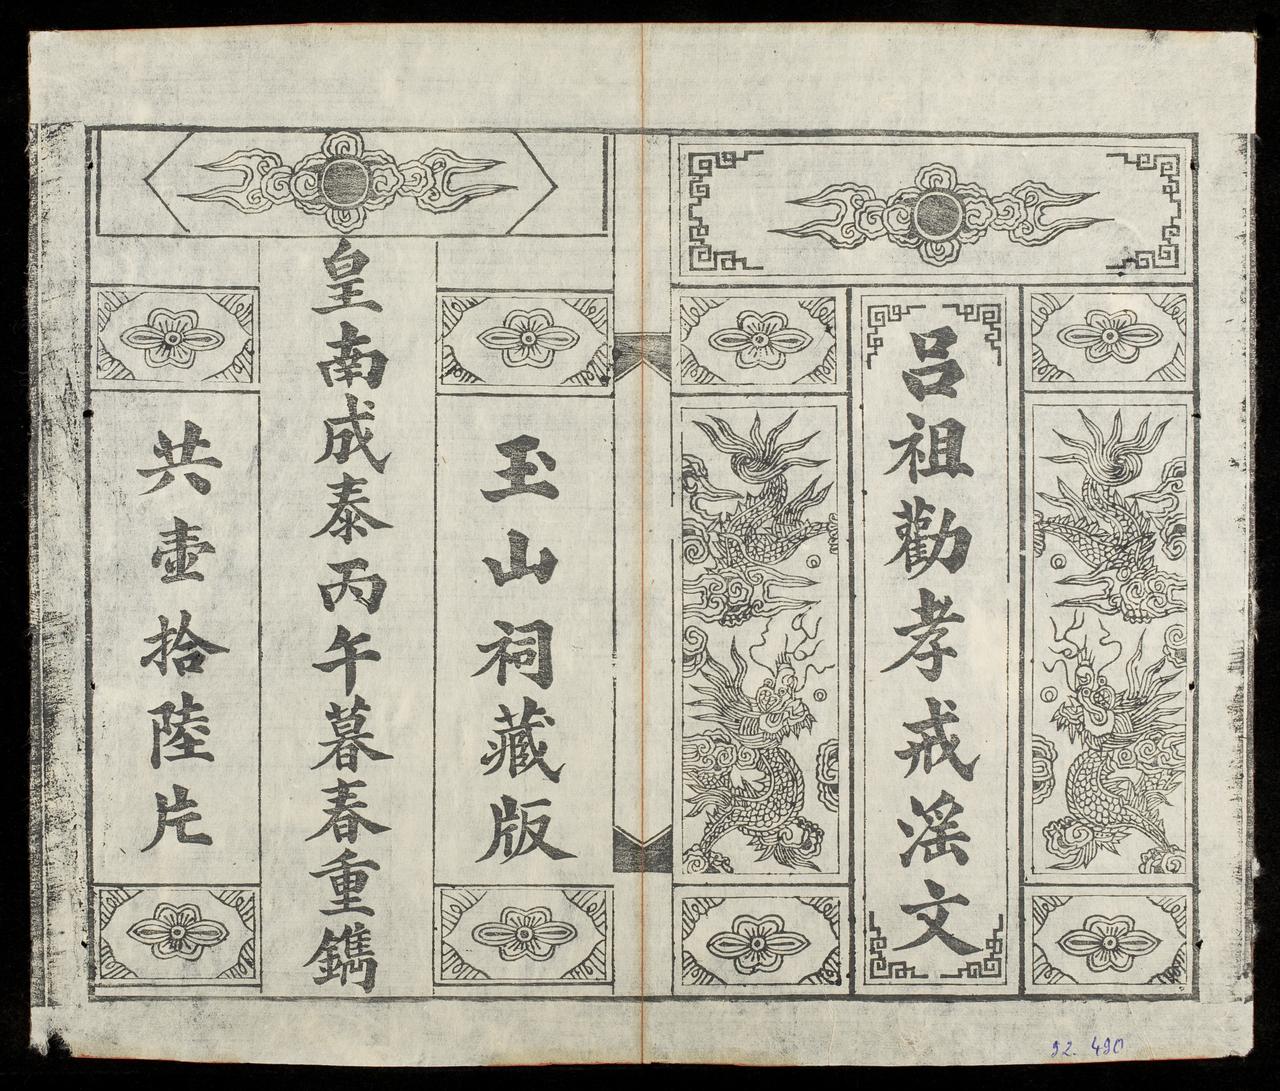 呂祖勸孝戒滛文
玉山祠藏版
皇南成泰丙午暮春重鐫
共壹拾陸片
92. 490